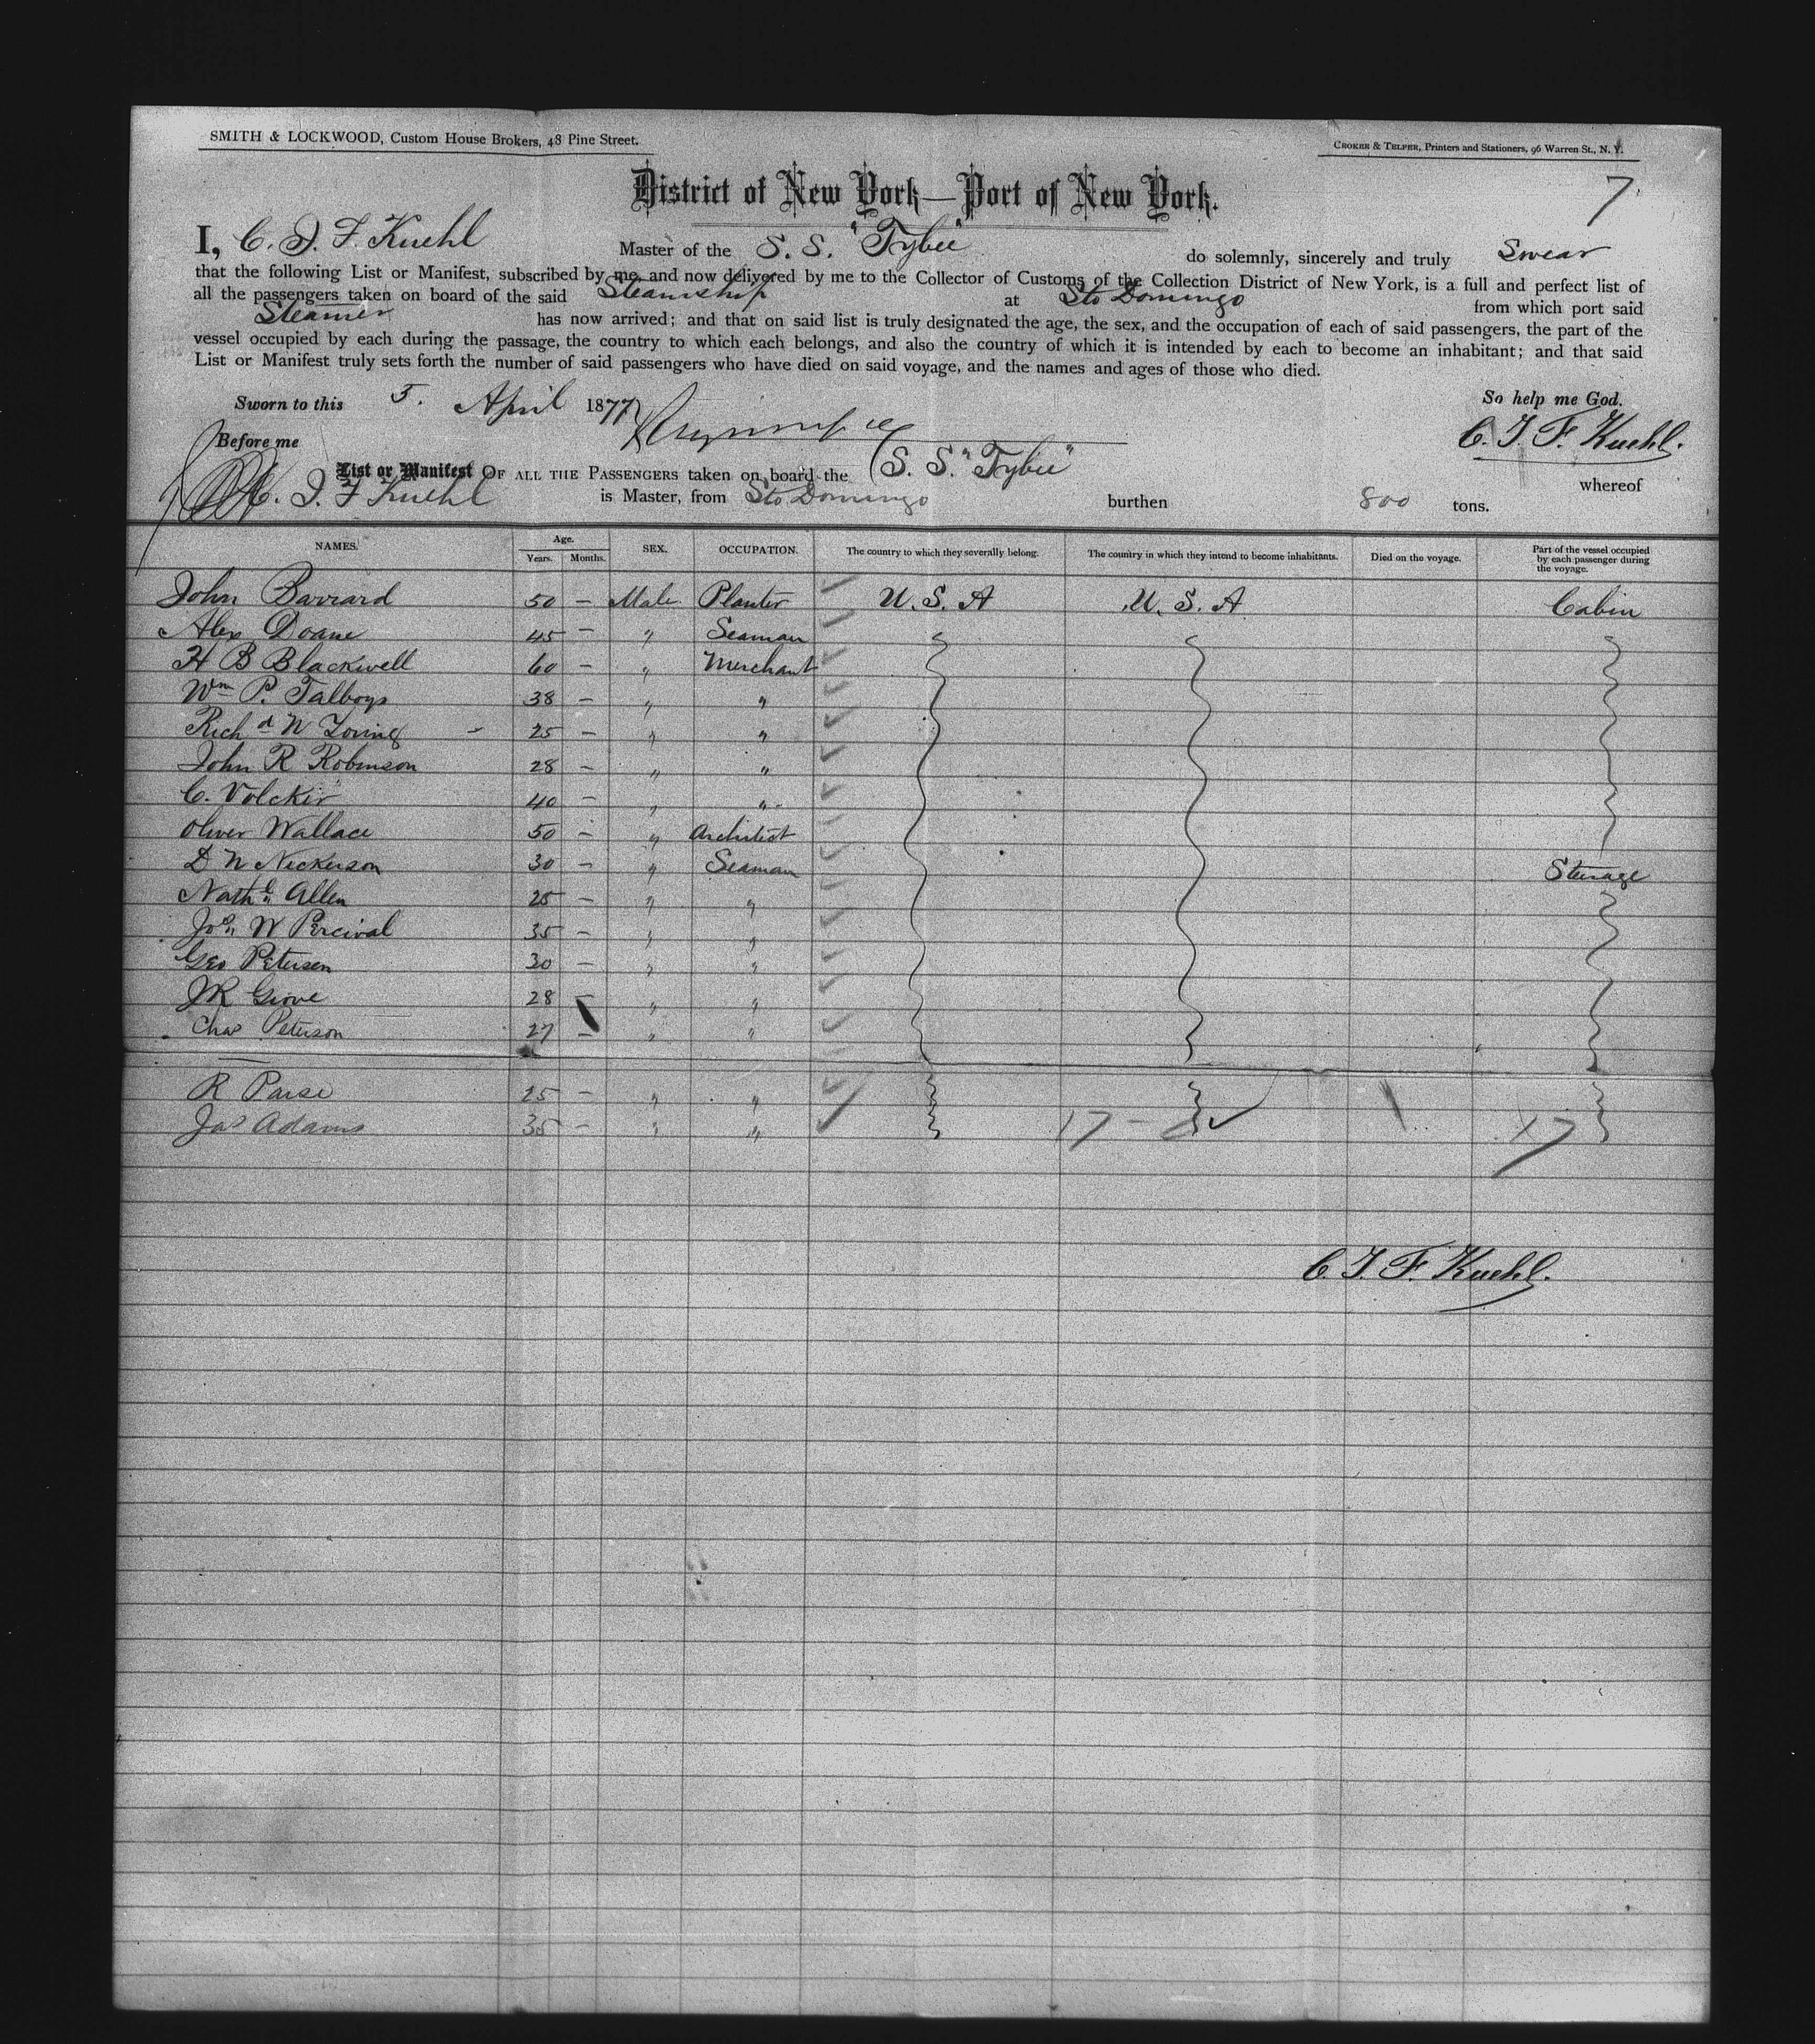 SMITH & LOCKWOOD, Custom House Brokers, 48 Pine Street.
CROKER & TELFER, Printers and Stationers, 96 Warren St., N. Y.
7
District of New York—Port of New York.
I, C. J. F. Kuehl Master of the S. S. "Tybee" do solemnly, sincerely and truly Swear
that the following List or Manifest, subscribed by me, and now delivered by me to the Collector of Customs of the Collection District of New York, is a full and perfect list of
all the passengers taken on board of the said Steamship at Sto Domingo from which port said
Steamer has now arrived; and that on said list is truly designated the age, the sex, and the occupation of each of said passengers, the part of the
vessel occupied by each during the passage, the country to which each belongs, and also the country of which it is intended by each to become an inhabitant; and that said
List or Manifest truly sets forth the number of said passengers who have died on said voyage, and the names and ages of those who died.
Sworn to this 5. April 1877 So help me God.
Before me C. J. F. Kuehl.
List or Manifest OF ALL THE PASSENGERS taken on board the S. S. "Tybee" whereof
C. J. F Kuehl is Master, from Sto Domingo burthen 800 tons.
NAMES. Age. Years. Months. SEX. OCCUPATION. The country to which they severally belong. The country in which they intend to become inhabitants. Died on the voyage. Part of the vessel occupied by each passenger during the voyage.
John Barrard 50 – Male Planter U. S. A U. S. A Cabin
Alex Doane 45 – " Seaman
H B Blackwell 60 – " Merchant
Wm P. Talboys 38 – " "
Richd N Loring 25 – " "
John R Robinson 28 – " "
C. Volckir 40 – " "
Oliver Wallace 50 – " Architect
D N Nickerson 30 – " Seaman Sterage
Nathl Allen 25 – " "
Jos W Percival 35 – " "
Geo Petersen 30 – " "
JR Grove 28 – " "
Chas Peterson 27 – " "
R Parse 25 – " "
Jas Adams 35 – " " 17 – 17
C. J. F. Kuehl.